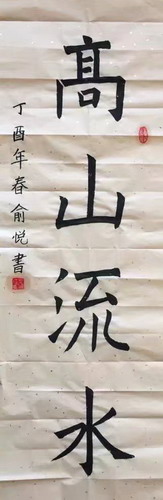 高山流水
丁酉年春俞悦書